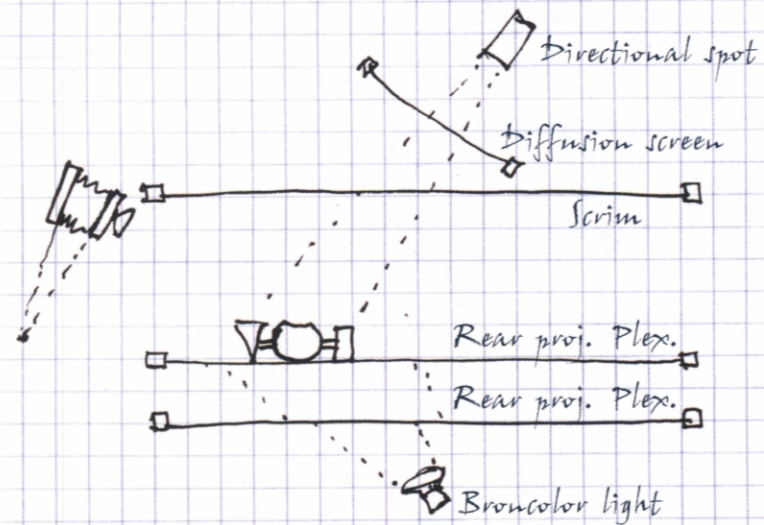 Directional spot
Diffusion screen
Scrim
Rear proj. Plex.
Rear proj. Plex.
Broncolor light